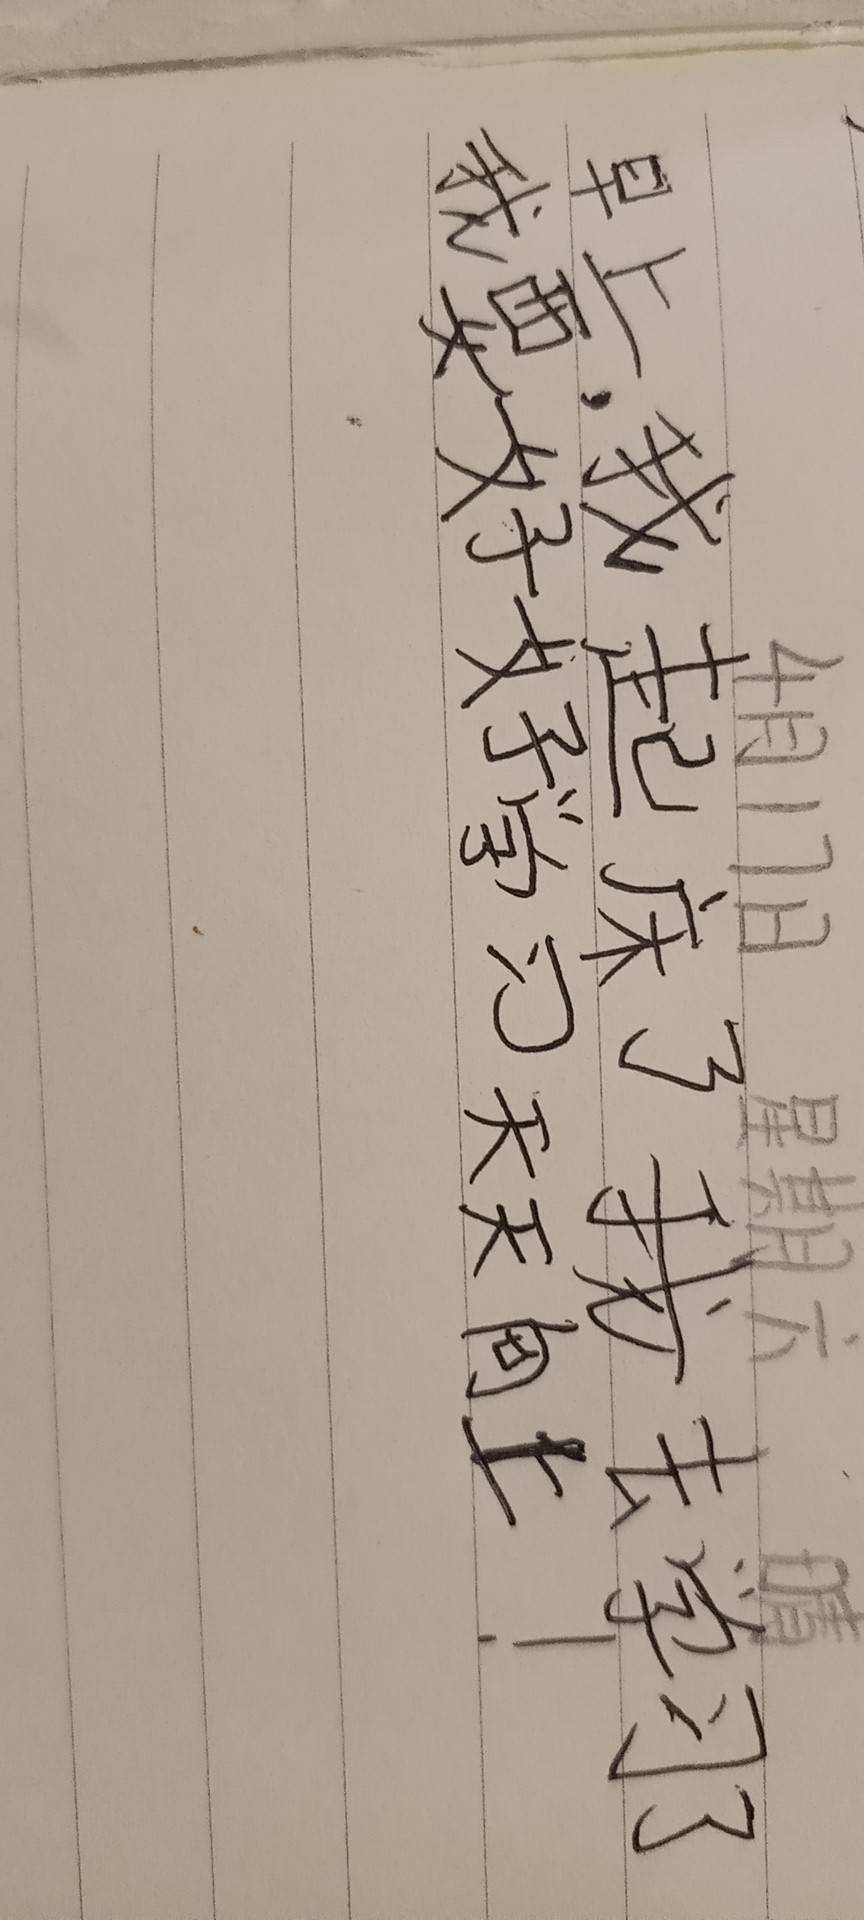 4月17日 星期六 晴
早上,我起床了我去学习了
我要好好学习天天向上!